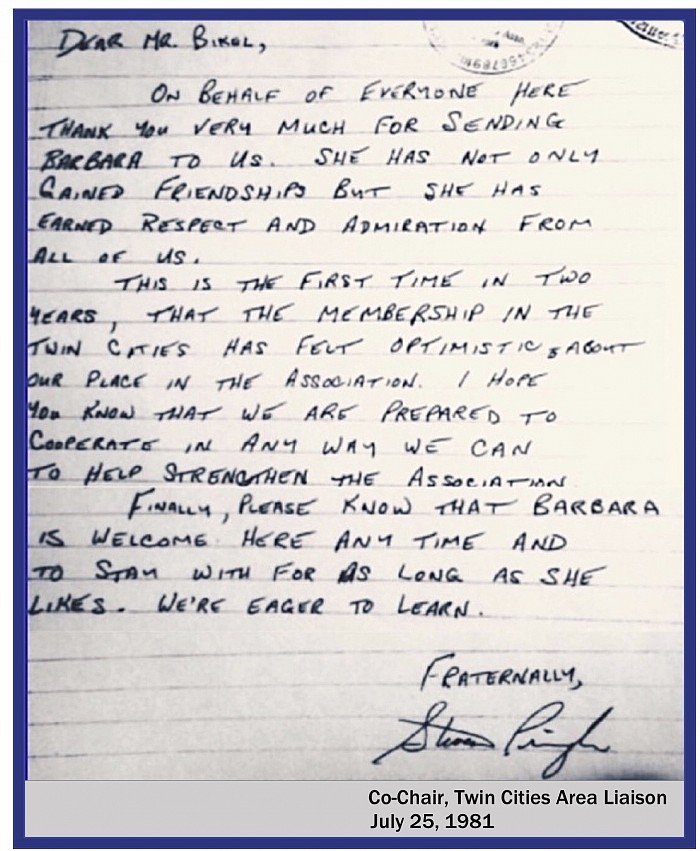 DEAR MR. BIKEL,
ON BEHALF OF EVERYONE HERE
THANK YOU VERY MUCH FOR SENDING
BARBARA TO US. SHE HAS NOT ONLY
GAINED FRIENDSHIPS BUT SHE HAS
EARNED RESPECT AND ADMIRATION FROM
ALL OF US.
THIS IS THE FIRST TIME IN TWO
YEARS, THAT THE MEMBERSHIP IN THE
TWIN CITIES HAS FELT OPTIMISTIC ABOUT
OUR PLACE IN THE ASSOCIATION. I HOPE
YOU KNOW THAT WE ARE PREPARED TO
COOPERATE IN ANY WAY WE CAN
TO HELP STRENGTHEN THE ASSOCIATION.
FINALLY, PLEASE KNOW THAT BARBARA
IS WELCOME HERE ANY TIME AND
TO STAY WITH FOR AS LONG AS SHE
LIKES. WE'RE EAGER TO LEARN.
FRATERNALLY,
Co-Chair, Twin Cities Area Liaison
July 25, 1981